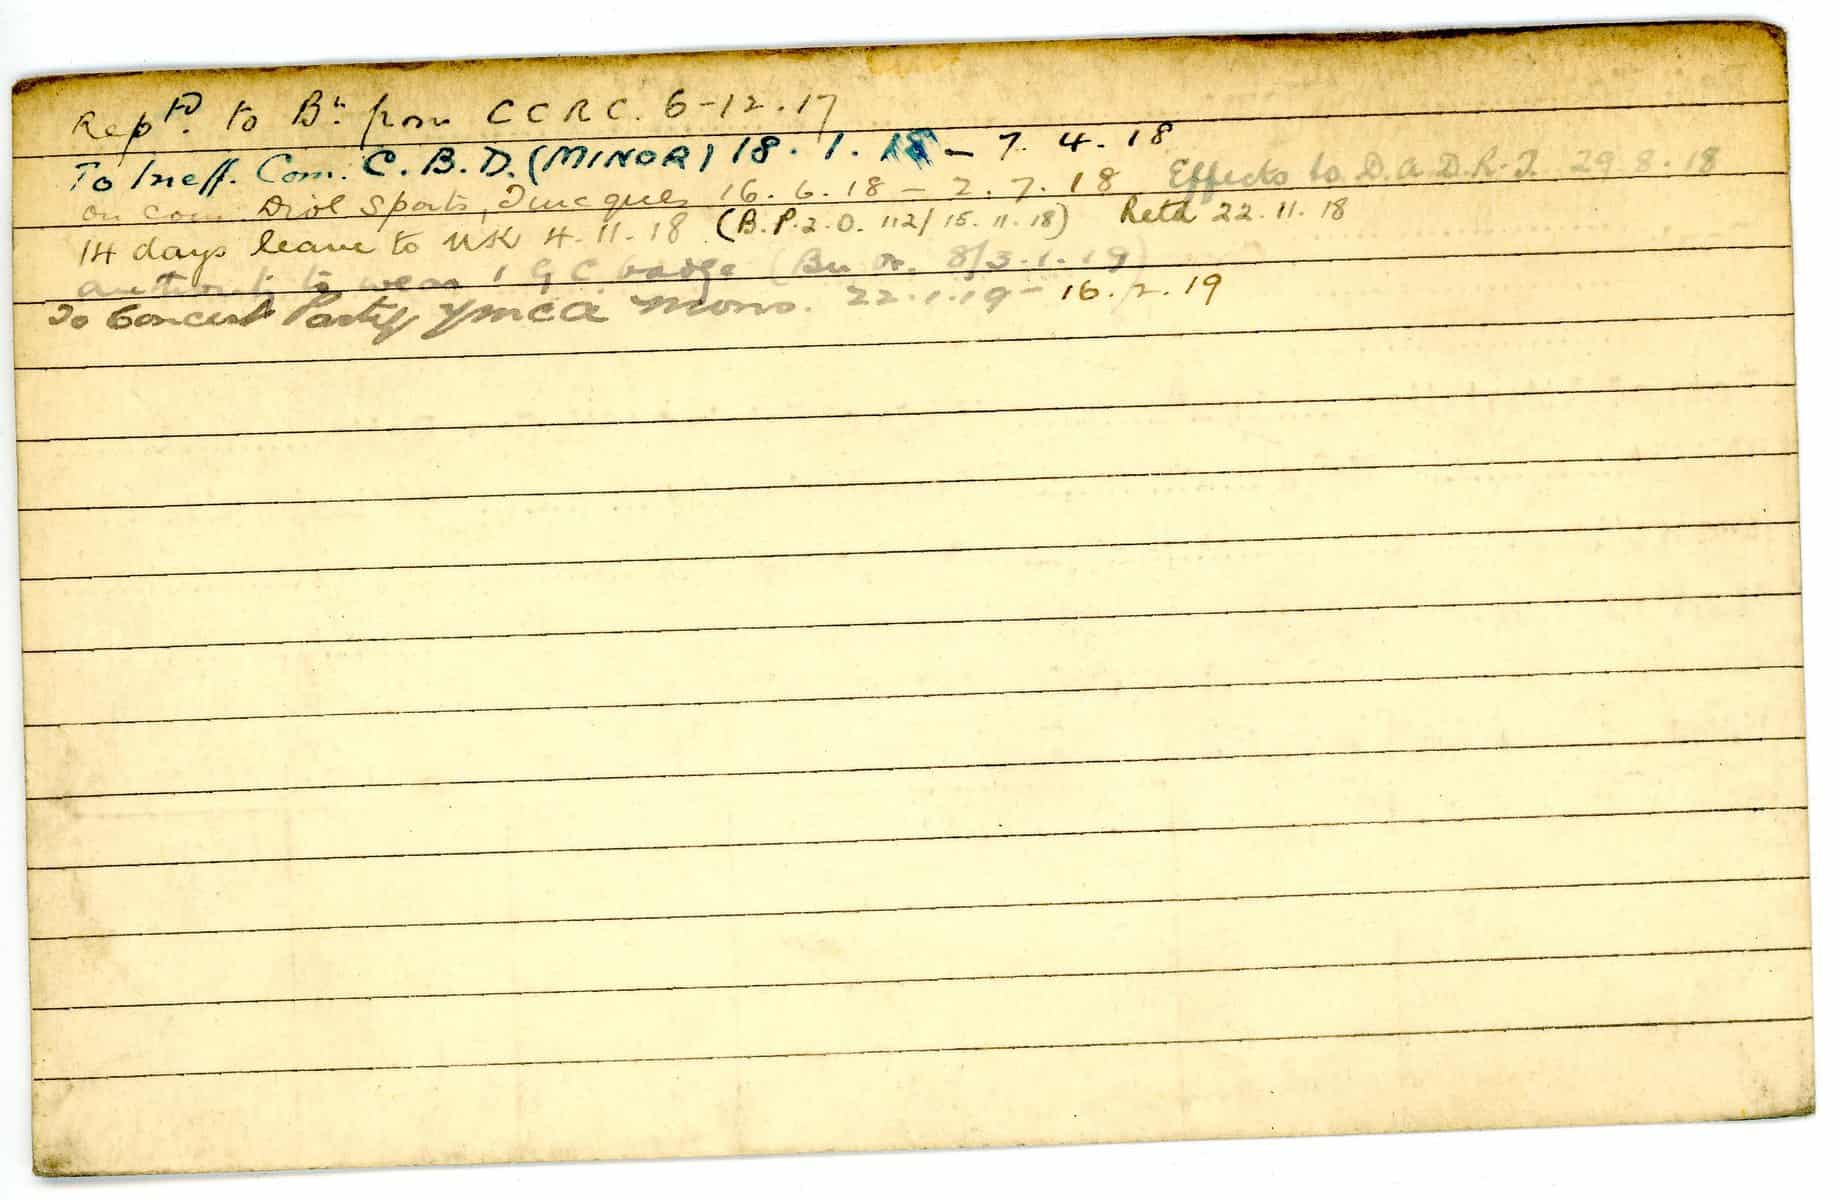 Reptd. to Bn. from CCRC. 6-12.17
To Ineff. Com. C.B.D. (MINOR) 18.1.18 - 7.4.18
on com. Divl Sports, Tincques 16.6.18 - 2.7.18 Effects to D.A.D.R.T. 29.8.18
14 days leave to UK 4.11.18 (B.P.2.O. 112/15.11.18) Retd 22.11.18
authority to wear 1 G C badge (Bn Or. 8/3.1.19)
To Concert Party YMCA Mons. 22.1.19 - 16.2.19